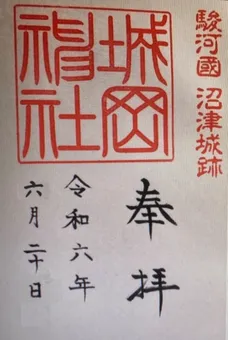 駿河國 沼津城跡
城岡
神社
奉拝
令和六年
六月二十日